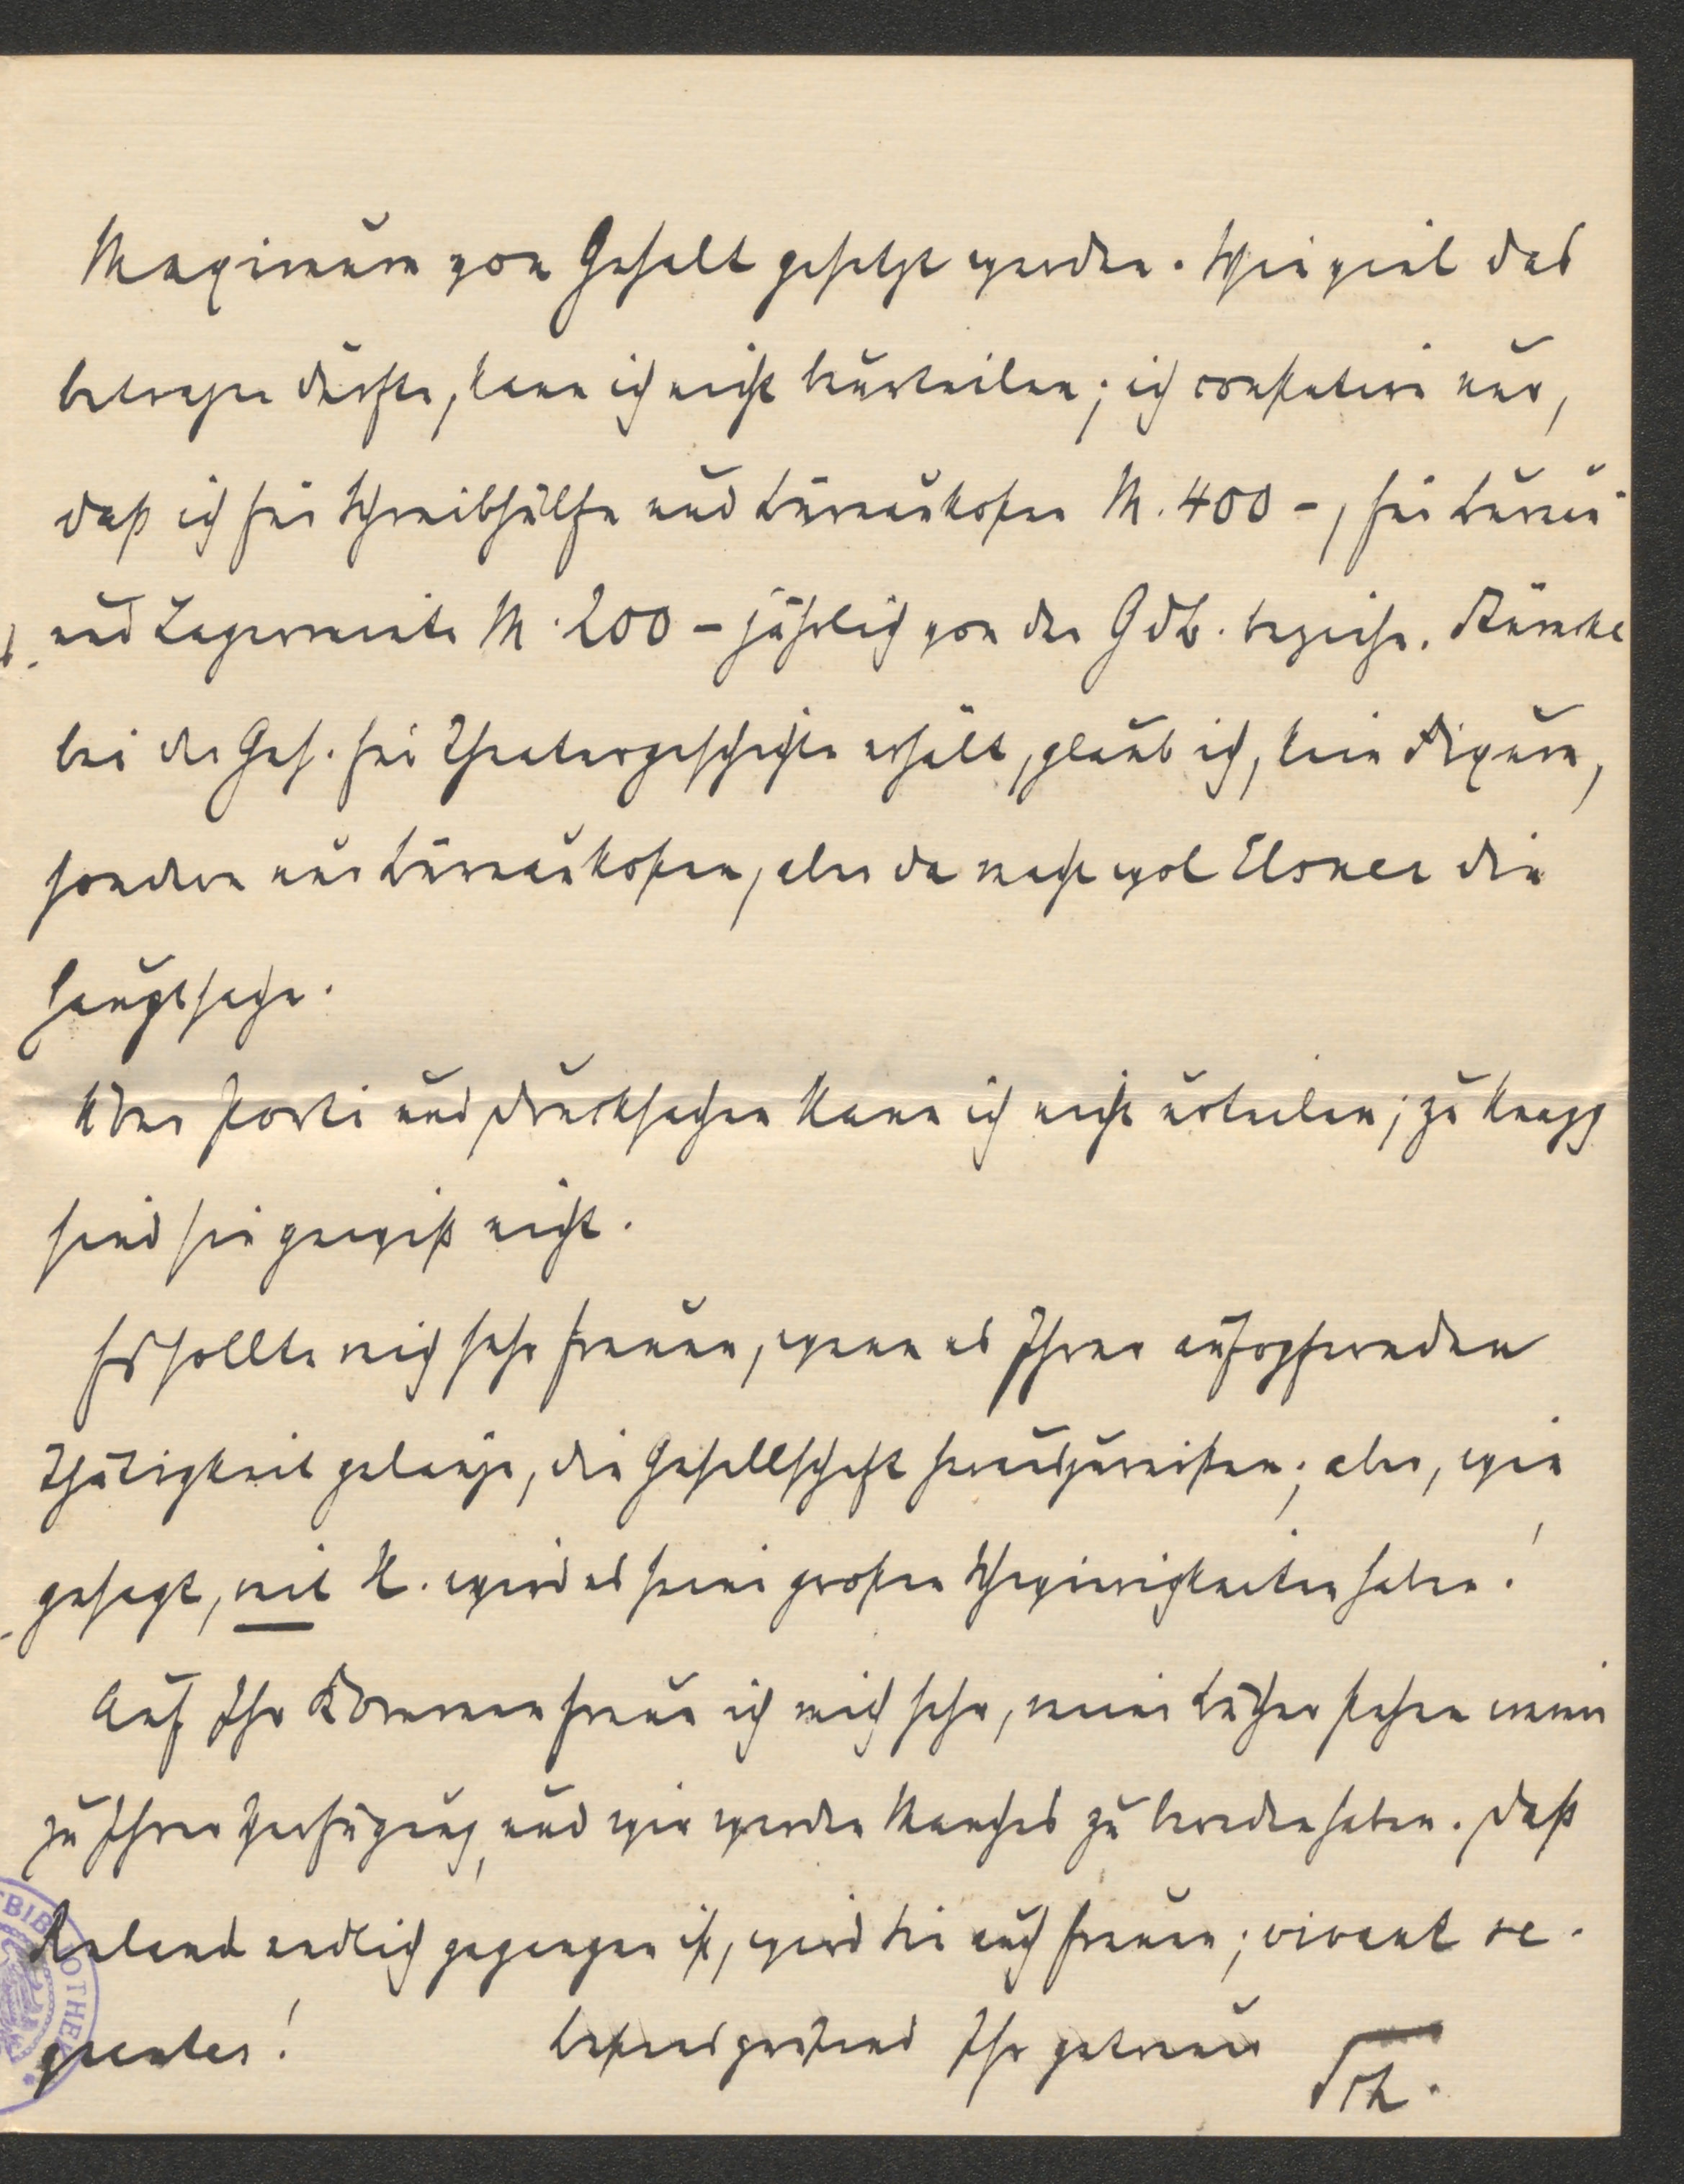 Maximum von Gehalt gesetzt werden. Wie viel das
betragen dürfte, kann ich nicht beurteilen; ich constatire nur,
daß ich für Schreibhülfe und Büreaukosten M. 400 –, für Bureau-
und Lagermiete M. 200 – jährlich von der GdB. beziehe. Stümcke
bei der Ges. für Theatergeschichte erhält, glaub ich, kein Fixum,
sondern nur Büreaukosten, aber da macht wol Elsner die
Hauptsache.
Über Porti und Drucksachen kann ich nicht urteilen; zu knapp
sind sie gewiß nicht.
Es sollte mich sehr freuen, wenn es Ihrer aufopfernden
Thätigkeit gelänge, die Gesellschaft herauszureißen; aber, wie
gesagt, mit H. wird es seine großen Schwierigkeiten haben!
Auf Ihr Kommen freue ich mich sehr, meine Bücher stehen immer
zu Ihrer Verfügung, und wir werden Manches zu bereden haben. Daß
Ruland endlich gegangen ist, wird Sie auch freuen; vivant se-
quentes! Bestens grüßend Ihr getreuer